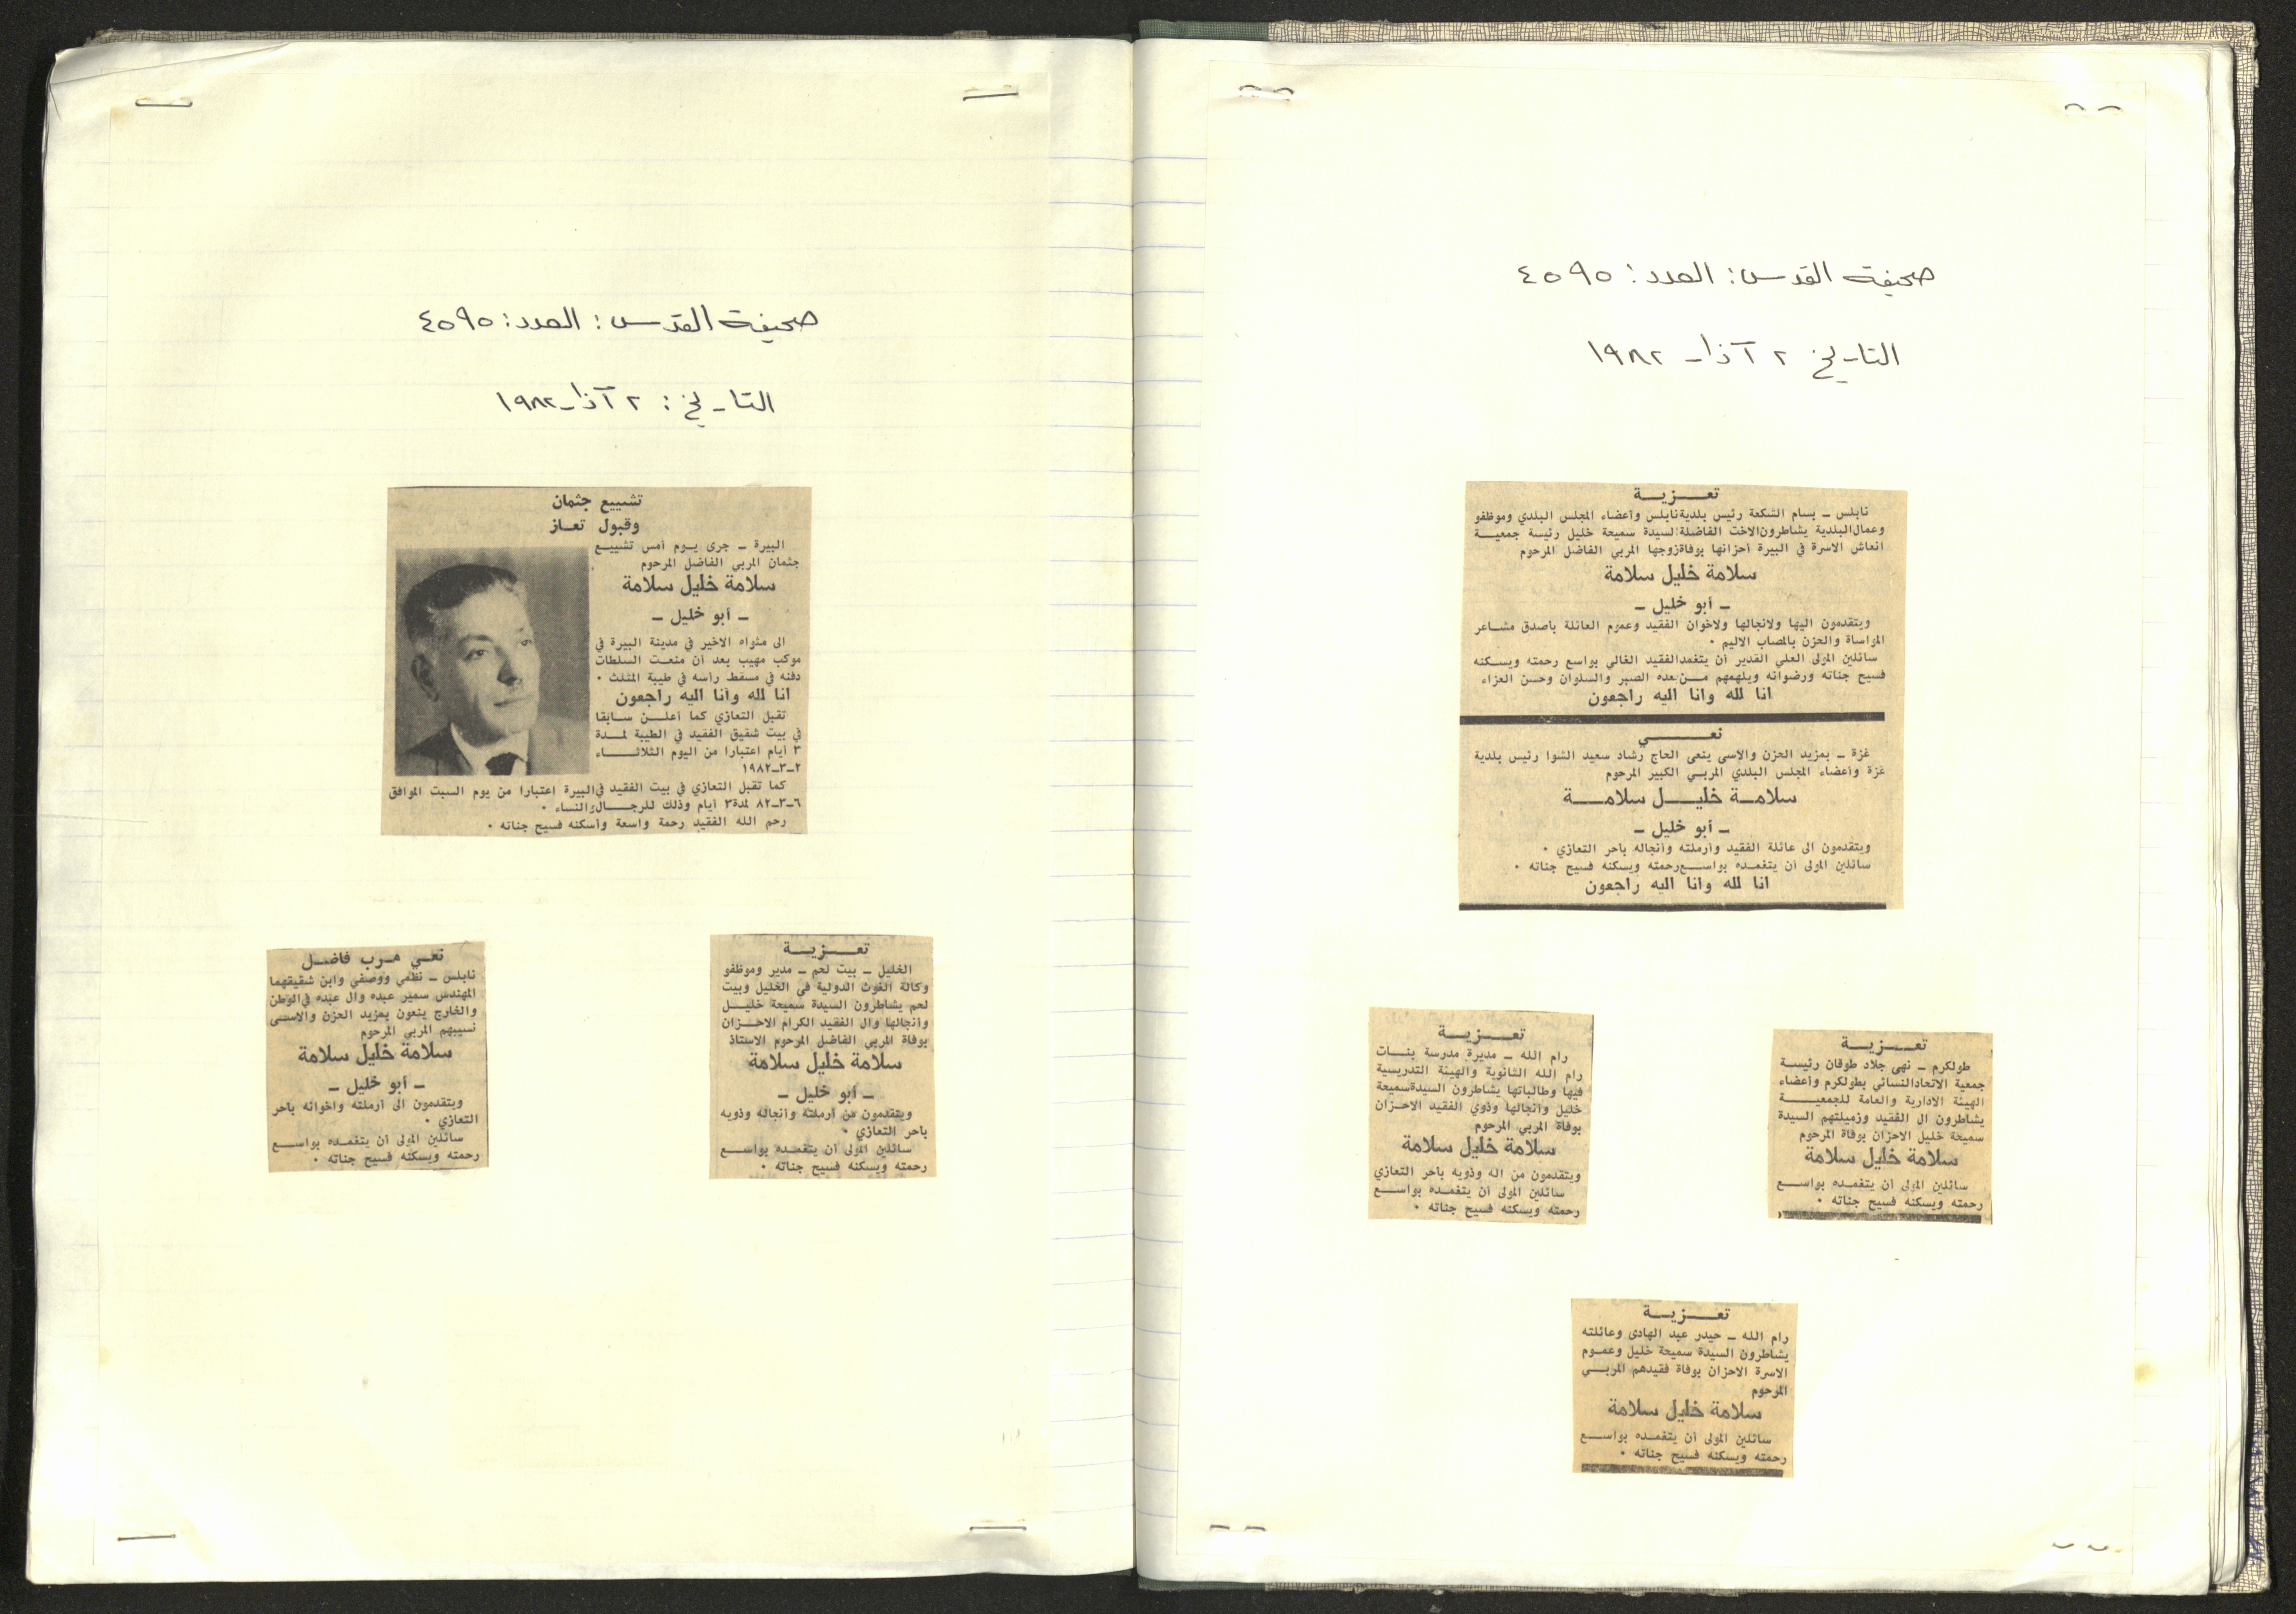 صحيفة القدس: العدد: ٤٥٩٥
التاريخ: ٢ آذار ١٩٨٢
تشييع جثمان
وقبول تعاز
البيرة ـ جرى يوم أمس تشييع
جثمان المربي الفاضل المرحوم
سلامة خليل سلامة
ـ أبو خليل ـ
الى مثواه الاخير في مدينة البيرة في
موكب مهيب بعد أن منعت السلطات
دفنه في مسقط رأسه في طيبة المثلث .
انا لله وأنا اليه راجعون
تقبل التعازي كما أعلن سابقا
في بيت شقيق الفقيد في الطيبة لمدة
٣ أيام اعتبارا من اليوم الثلاثاء
٢ـ٣ـ١٩٨٢
كما تقبل التعازي في بيت الفقيد في البيرة اعتبارا من يوم السبت الموافق
٦ـ٣ـ٨٢ لمدة ٣ أيام وذلك للرجال والنساء .
رحم الله الفقيد رحمة واسعة وأسكنه فسيح جناته .
تعزية
الخليل ـ بيت لحم ـ مدير وموظفو
وكالة الغوث الدولية في الخليل وبيت
لحم يشاطرون السيدة سميحة خليل
وأنجالها وال الفقيد الكرام الاحزان
بوفاة المربي الفاضل المرحوم الاستاذ
سلامة خليل سلامة
ـ أبو خليل ـ
ويتقدمون من أرملته وأنجاله وذويه
باحر التعازي .
سائلين المولى أن يتغمده بواسع
رحمته ويسكنه فسيح جناته .
نعي مرب فاضل
نابلس ـ نظمي ووصفي وابن شقيقهما
المهندس سمير عبده وال عبده في الوطن
والخارج ينعون بمزيد الحزن والاسى
نسيبهم المربي المرحوم
سلامة خليل سلامة
ـ أبو خليل ـ
ويتقدمون الى أرملته واخوانه باحر
التعازي .
سائلين المولى أن يتغمده بواسع
رحمته ويسكنه فسيح جناته .
صحيفة القدس: العدد: ٤٥٩٥
التاريخ ٢ آذار ١٩٨٢
تعزية
نابلس ـ بسام الشكعة رئيس بلدية نابلس وأعضاء المجلس البلدي وموظفو
وعمال البلدية يشاطرون الاخت الفاضلة السيدة سميحة خليل رئيسة جمعية
انعاش الاسرة في البيرة أحزانها بوفاة زوجها المربي الفاضل المرحوم
سلامة خليل سلامة
ـ أبو خليل ـ
ويتقدمون اليها ولانجالها ولاخوان الفقيد وعموم العائلة باصدق مشاعر
المواساة والحزن بالمصاب الاليم .
سائلين المولى العلي القدير أن يتغمد الفقيد الغالي بواسع رحمته ويسكنه
فسيح جناته ورضوانه ويلهمهم من بعده الصبر والسلوان وحسن العزاء
انا لله وانا اليه راجعون
نعي
غزة ـ بمزيد الحزن والاسى ينعى الحاج رشاد سعيد الشوا رئيس بلدية
غزة وأعضاء المجلس البلدي المربي الكبير المرحوم
سلامة خليل سلامة
ـ أبو خليل ـ
ويتقدمون الى عائلة الفقيد وأرملته وأنجاله باحر التعازي .
سائلين المولى أن يتغمده بواسع رحمته ويسكنه فسيح جناته .
انا لله وانا اليه راجعون
تعزية
طولكرم ـ نهى جلاد طوقان رئيسة
جمعية الاتحاد النسائي بطولكرم وأعضاء
الهيئة الادارية والعامة للجمعية
يشاطرون ال الفقيد وزميلتهم السيدة
سميحة خليل الاحزان بوفاة المرحوم
سلامة خليل سلامة
سائلين المولى أن يتغمده بواسع
رحمته ويسكنه فسيح جناته .
تعزية
رام الله ـ مديرة مدرسة بنات
رام الله الثانوية والهيئة التدريسية
فيها وطالباتها يشاطرون السيدة سميحة
خليل وأنجالها وذوي الفقيد الاحزان
بوفاة المربي المرحوم
سلامة خليل سلامة
ويتقدمون من اله وذويه باحر التعازي
سائلين المولى أن يتغمده بواسع
رحمته ويسكنه فسيح جناته .
تعزية
رام الله ـ حيدر عبد الهادي وعائلته
يشاطرون السيدة سميحة خليل وعموم
الاسرة الاحزان بوفاة فقيدهم المربي
المرحوم
سلامة خليل سلامة
سائلين المولى أن يتغمده بواسع
رحمته ويسكنه فسيح جناته .